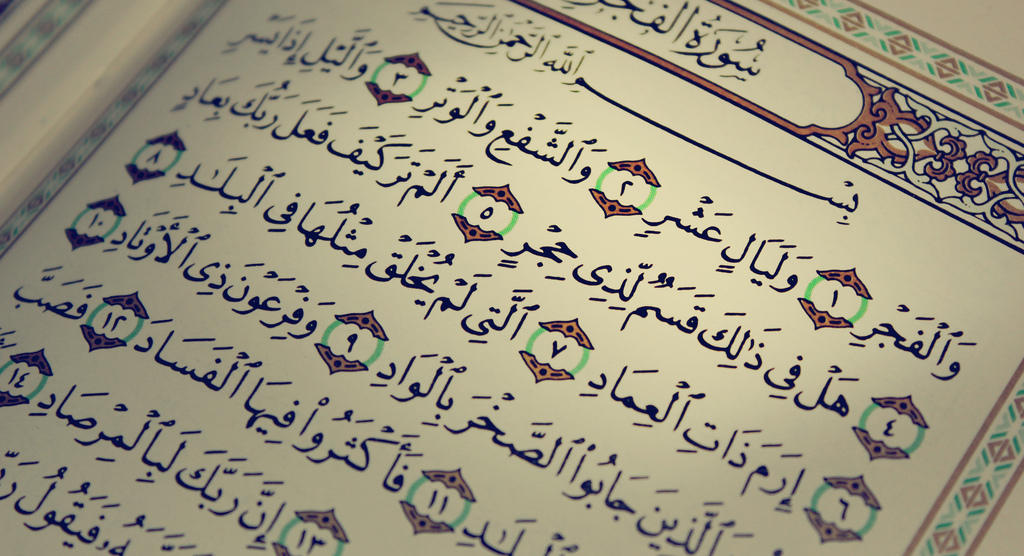 سُورَةُ الْفَجْرِ
بِسْمِ اللَّهِ الرَّحْمَٰنِ الرَّحِيمِ
وَٱلْفَجْرِ ١ وَلَيَالٍ عَشْرٍ ٢ وَٱلشَّفْعِ وَٱلْوَتْرِ ٣ وَٱلَّيْلِ إِذَا يَسْرِ
٤ هَلْ فِي ذَٰلِكَ قَسَمٌ لِّذِي حِجْرٍ ٥ أَلَمْ تَرَ كَيْفَ فَعَلَ رَبُّكَ بِعَادٍ
٦ إِرَمَ ذَاتِ ٱلْعِمَادِ ٧ ٱلَّتِي لَمْ يُخْلَقْ مِثْلُهَا فِي ٱلْبِلَٰدِ ٨
ٱلَّذِينَ جَابُوا۟ ٱلصَّخْرَ بِٱلْوَادِ ٩ وَفِرْعَوْنَ ذِي ٱلْأَوْتَادِ ١٠
ٱلْبِلَٰدِ ١١ فَأَكْثَرُوا۟ فِيهَا ٱلْفَسَادَ ١٢ فَصَبَّ
١٣ إِنَّ رَبَّكَ لَبِٱلْمِرْصَادِ ١٤
فَيَقُولُ